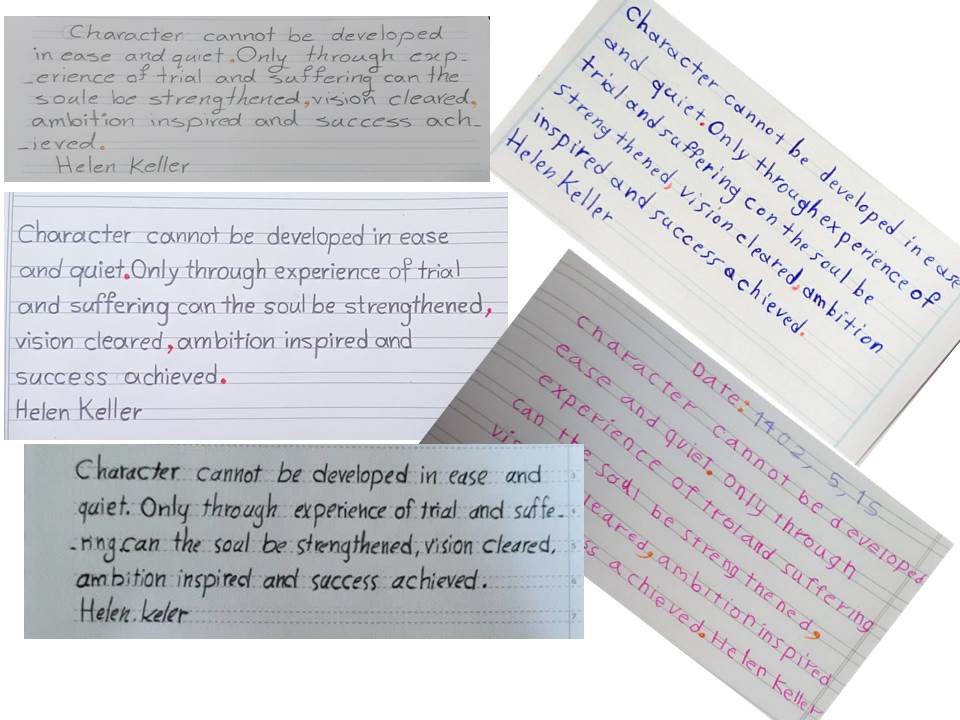 Character cannot be developed
in ease and quiet. Only through exp-
-erience of trial and suffering can the
soule be strengthened, vision cleared,
ambition inspired and success ach-
-ieved.
Helen Keller
Character cannot be developed in ease
and quiet. Only through experience of
trial and suffering con the soul be
streng thened, vision cleared, ambition
inspired and success achieved.
Helen Keller
Character cannot be developed in ease
and quiet. Only through experience of trial
and suffering can the soul be strengthened,
vision cleared, ambition inspired and
success achieved.
Helen Keller
Date: 1402, 5, 15
character cannot be developed
ease and quiet. only through
experience of troland suffering
can the soul be streng thened,
cleared, ambition inspired
achieved. Helen Keller
Character cannot be developed in ease and
quiet. Only through experience of trial and suffe-
-ring can the soul be strengthened, vision cleared,
ambition inspired and success achieved.
Helen. keler